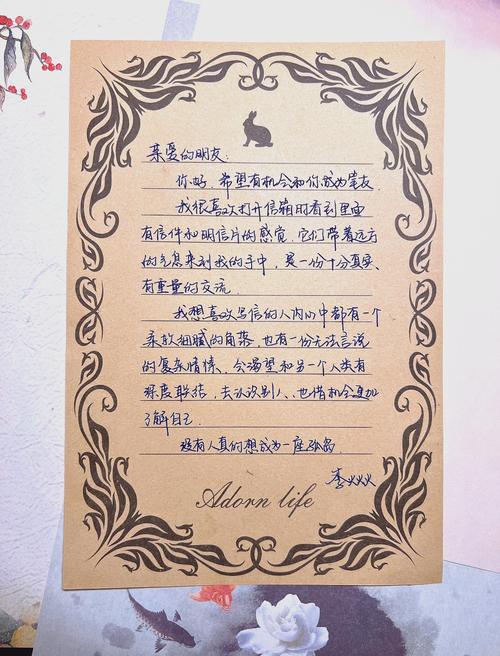 亲爱的朋友:
你好,希望有机会和你成为笔友.
我很喜欢打开信箱时看到里面
有信件和明信片的感觉,它们带着远方
的气息来到我的手中,是一份十分真实、
有重量的交流.
我想喜欢写信的人内心中都有一个
柔软细腻的角落,也有一份无法言说
的复杂情愫、会渴望和另一个人类有
深度联结,去认识别人、也借机会更加
了解自己.
没有人真的想成为一座孤岛.
李火火火
Adorn life